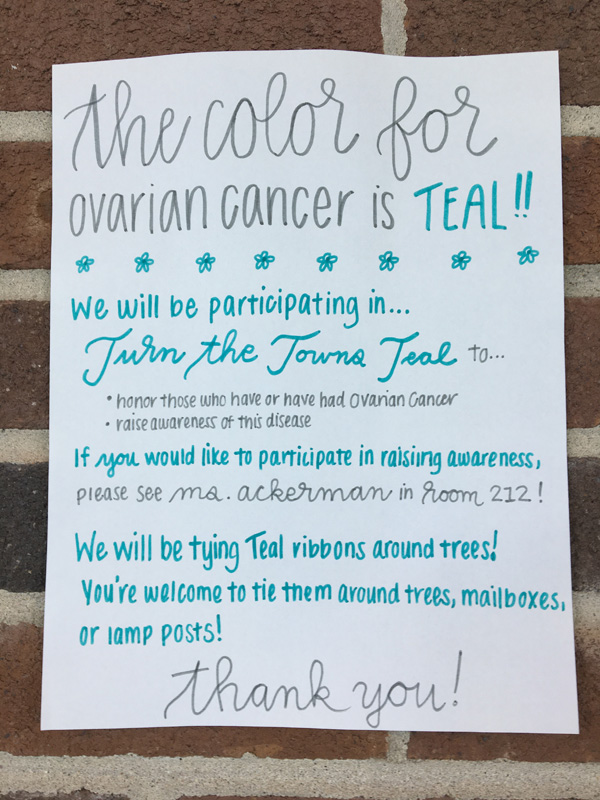 the color for
ovarian cancer is TEAL!!
We will be participating in...
Turn the Towns Teal to...
• honor those who have or have had Ovarian Cancer
• raise awareness of this disease
If you would like to participate in raisiing awareness,
please see ms. ackerman in room 212!
We will be tying Teal ribbons around trees!
You're welcome to tie them around trees, mailboxes,
or lamp posts!
thank you!